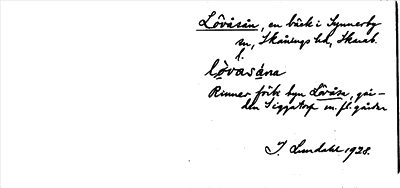 Lövåsån, en bäck i Synnerby
sn, Skånings hd, Skarab.
l.
lövasána
Rinner förbi byn Lövåsa, går-
den Siggatorp m. fl. gårdar
J. Lundahl 1928.